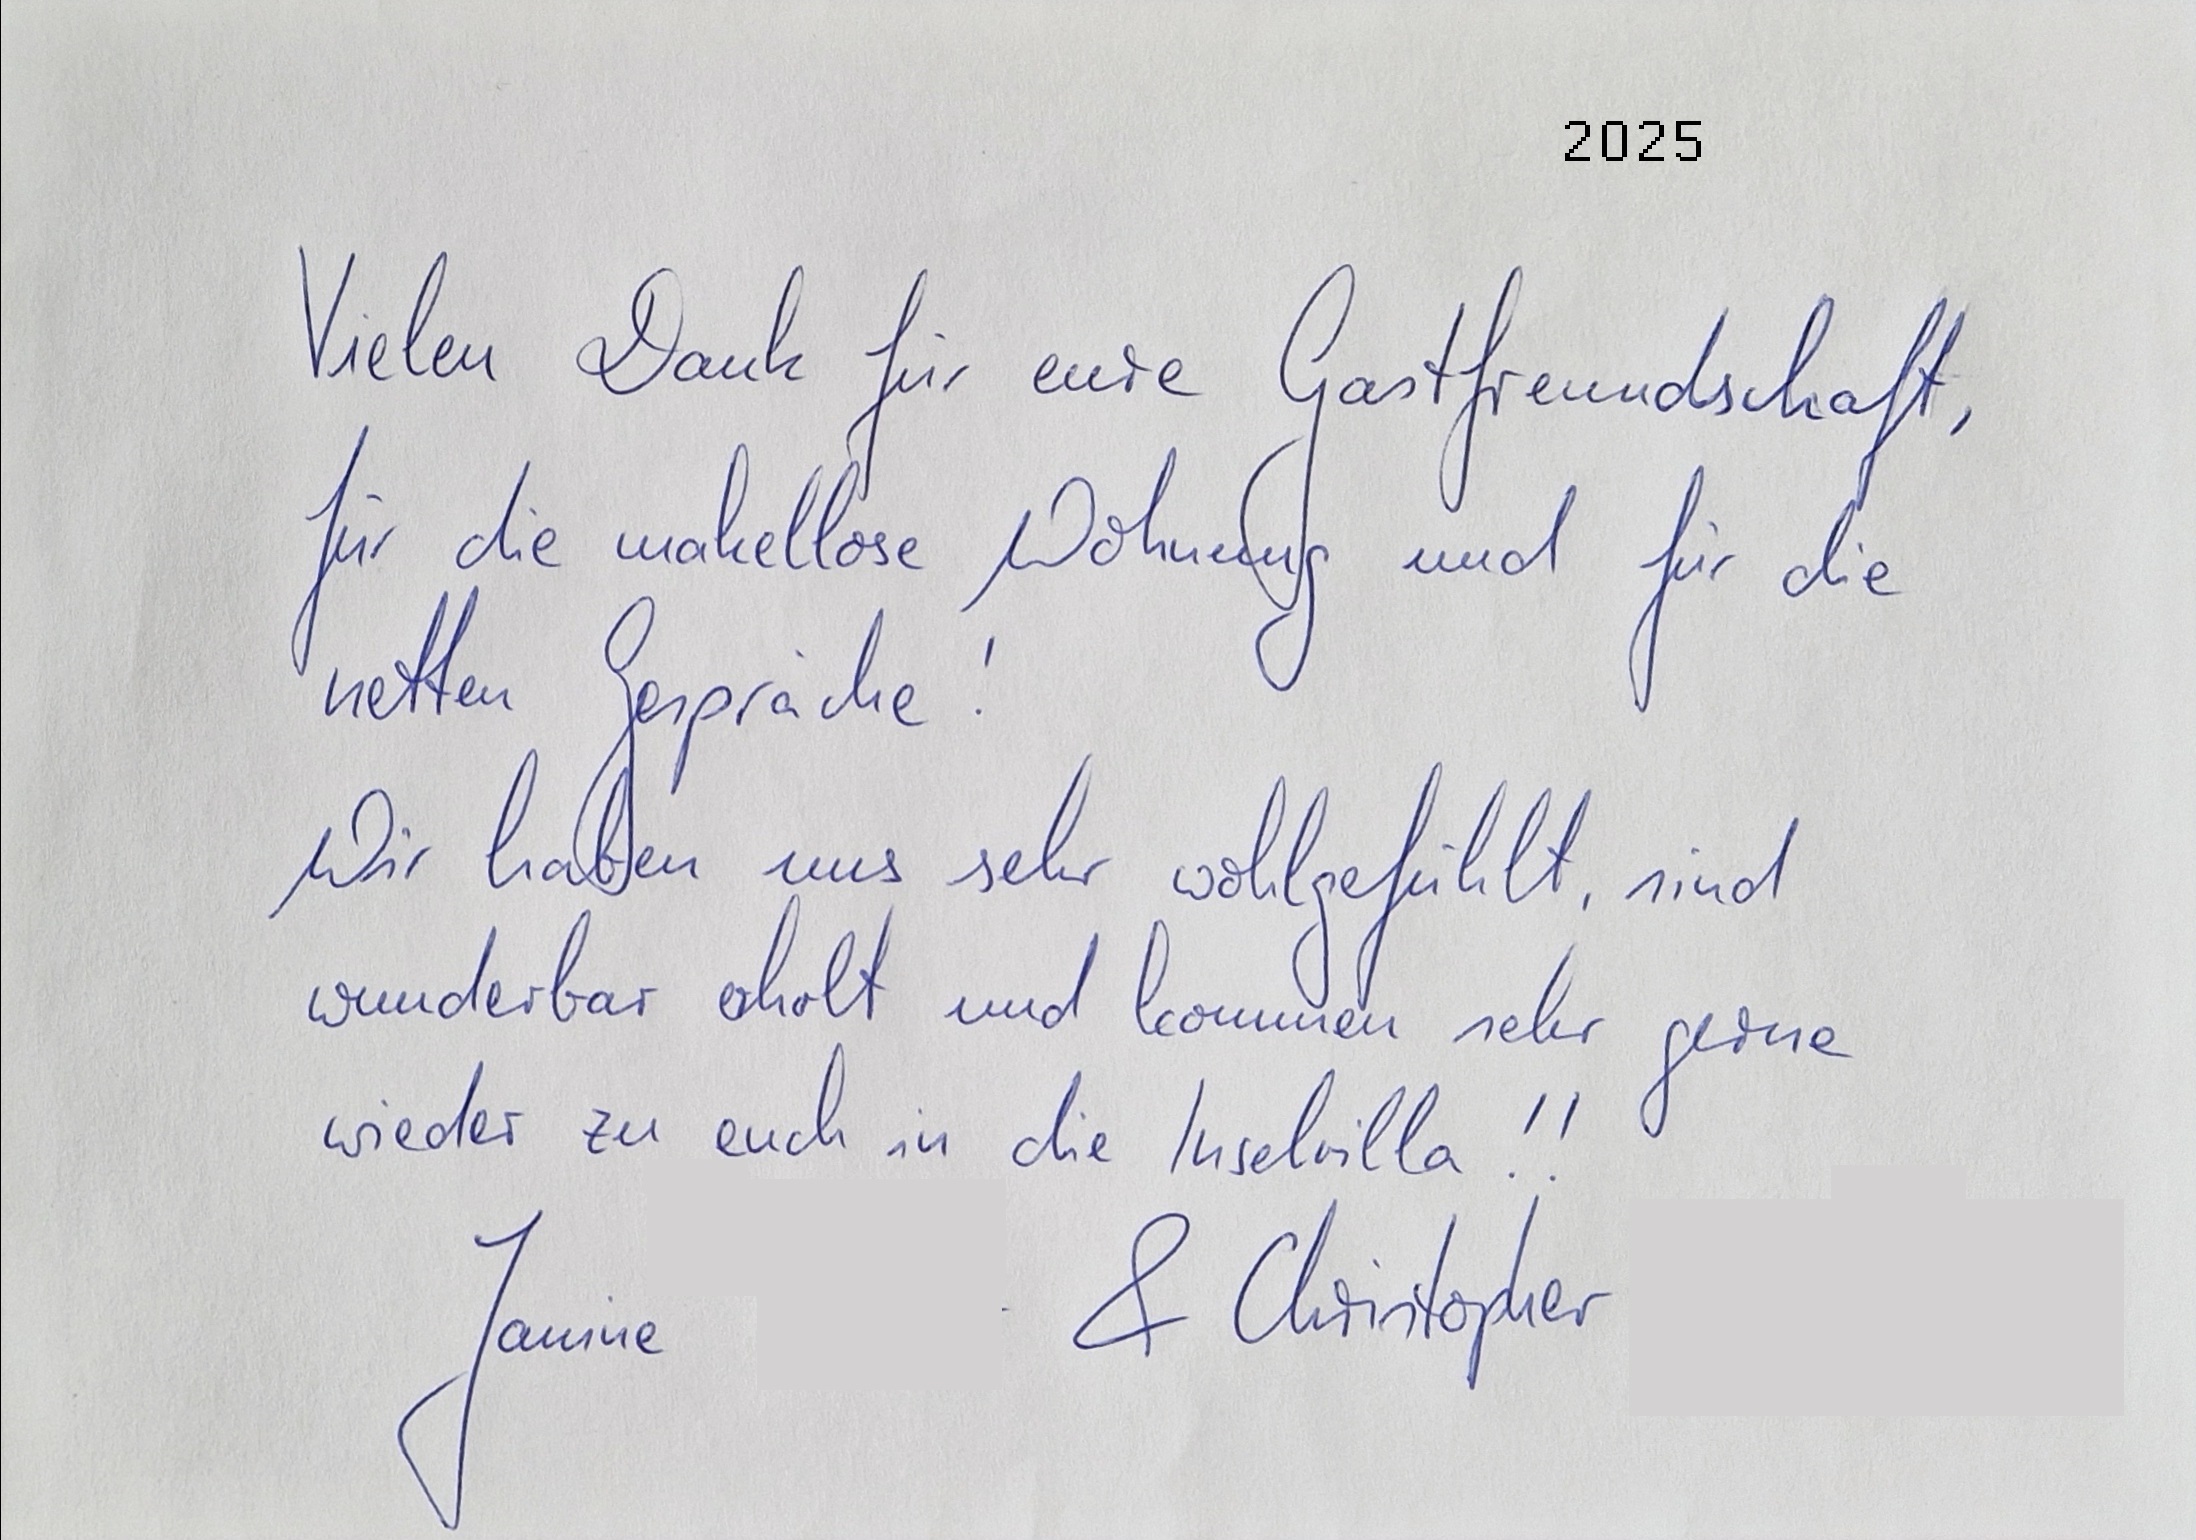 2025
Vielen Dank für eure Gastfreundschaft,
für die makellose Wohnung und für die
netten Gespräche!
Wir haben uns sehr wohlgefühlt, sind
wunderbar erholt und kommen sehr gerne
wieder zu euch in die Inselvilla!!
Janine & Christopher